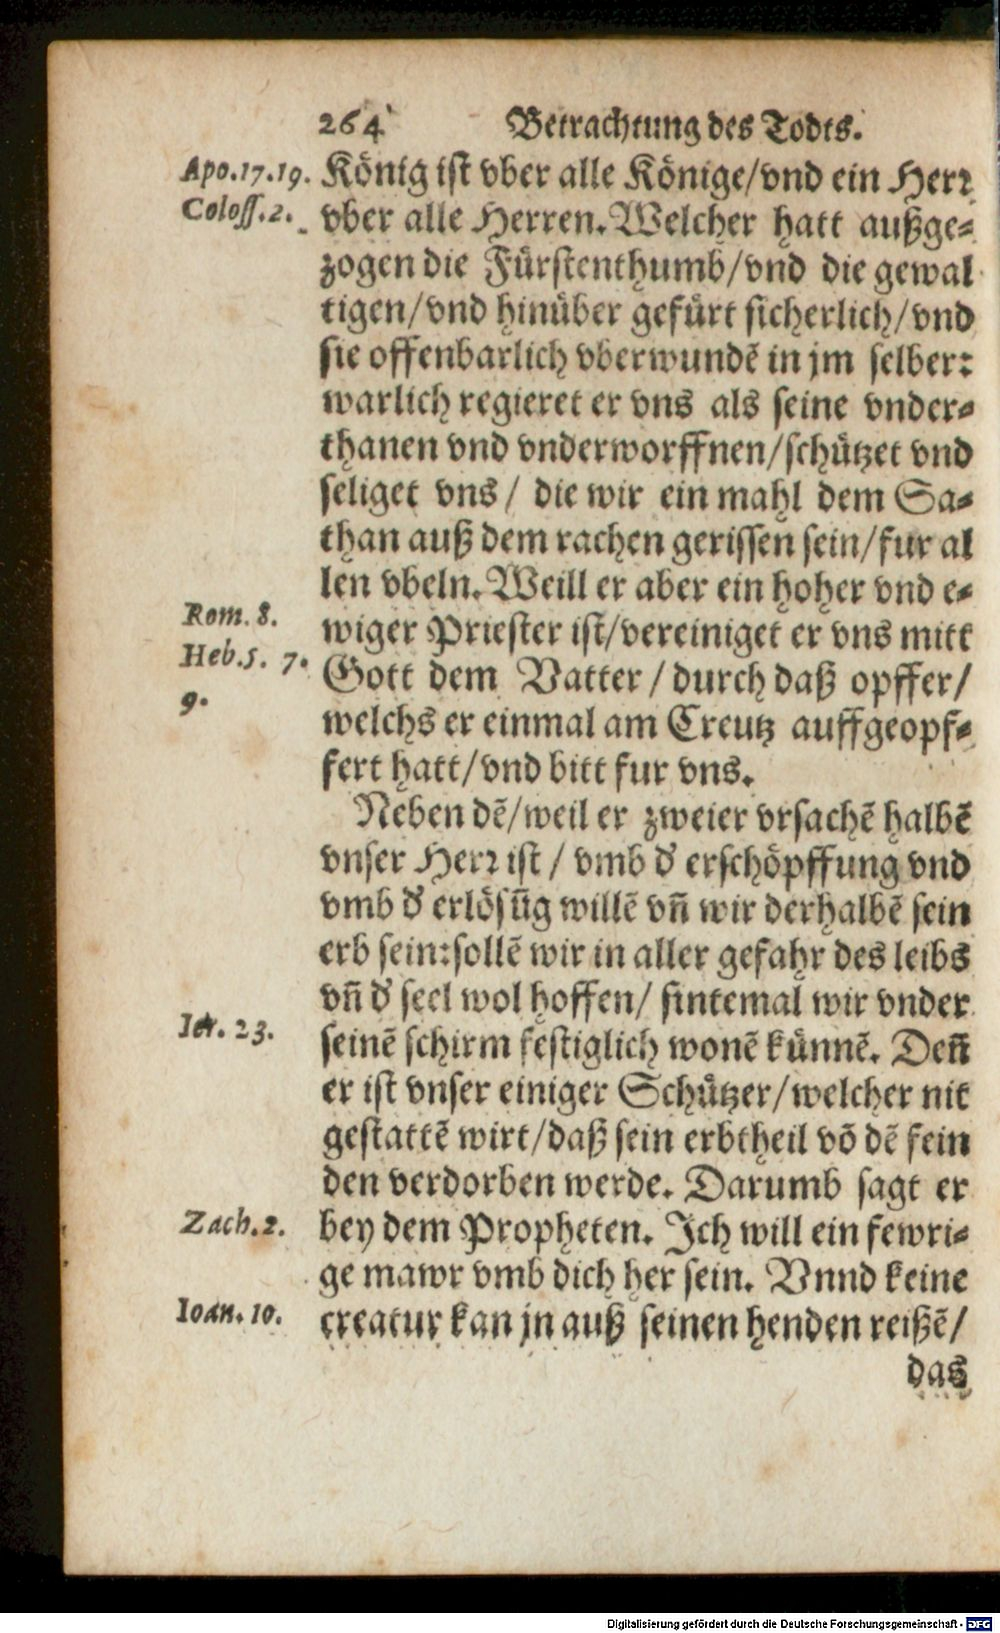 264 Betrachtung des Todts.
Apo.17.19. König ist vber alle Könige/vnd ein Herr
Coloss.2. vber alle Herren. Welcher hatt außge-
zogen die Fürstenthumb/vnd die gewal
tigen/vnd hinüber gefürt sicherlich/vnd
sie offenbarlich vberwundē in jm selber:
warlich regieret er vns als seine vnder-
thanen vnd vnderworffnen/schützet vnd
seliget vns/ die wir ein mahl dem Sa-
than auß dem rachen gerissen sein/fur al
len vbeln. Weill er aber ein hoher vnd e-
Rom. 8. wiger Priester ist/vereiniget er vns mitt
Heb.5. 7. Gott dem Vatter/durch daß opffer/
9. welchs er einmal am Creutz auffgeopf-
fert hatt/vnd bitt fur vns.
Neben dē/weil er zweier vrsachē halbē
vnser Herr ist/ vmb d' erschöpffung vnd
vmb d' erlösūg willē vn̄ wir derhalbē sein
erb sein:sollē wir in aller gefahr des leibs
vn̄ d' seel wol hoffen/ sintemal wir vnder
Ier. 23. seinē schirm festiglich wonē künnē. Den̄
er ist vnser einiger Schützer/welcher nit
gestattē wirt/daß sein erbtheil vō dē fein
den verdorben werde. Darumb sagt er
Zach.2. bey dem Propheten. Ich will ein fewri-
ge mawr vmb dich her sein. Vnnd keine
Ioan. 10. creatur kan jn auß seinen henden reißē/
das
Digitalisierung gefördert durch die Deutsche Forschungsgemeinschaft - DFG